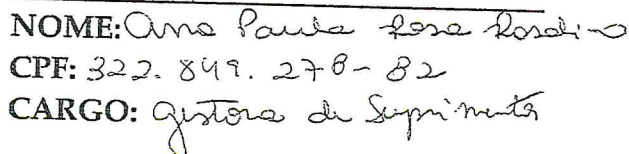 NOME: Ana Paula Rosa Rosalino
CPF: 322.849.278-82
CARGO: Gestora de Suprimentos